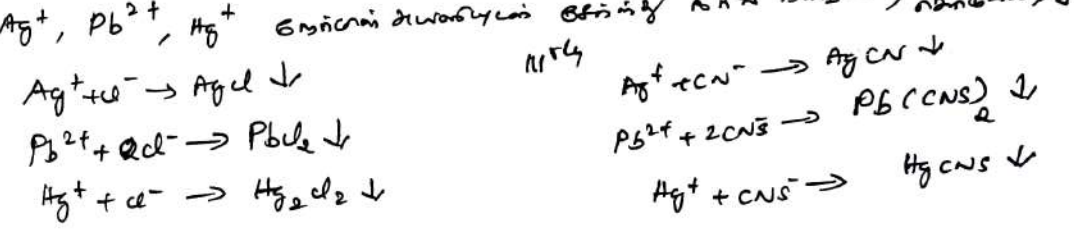 Ag⁺, Pb²⁺, Hg⁺
Ag⁺ + Cl⁻ → AgCl ↓
Pb²⁺ + 2Cl⁻ → PbCl₂ ↓
Hg⁺ + Cl⁻ → Hg₂Cl₂ ↓
Ag⁺ + CN⁻ → AgCN ↓
Pb²⁺ + 2CNS⁻ → Pb(CNS)₂ ↓
Hg⁺ + CNS⁻ → HgCNS ↓